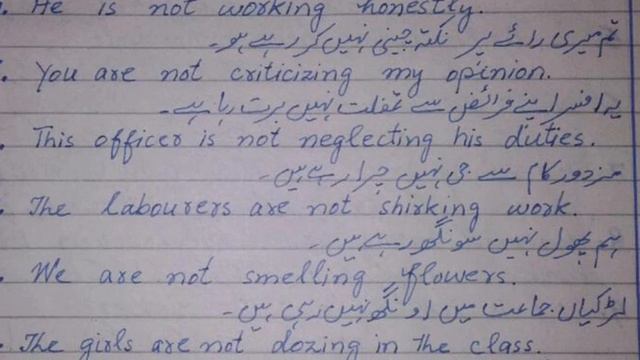 He is not working honestly.
تم میری رائے پر نکتہ چینی نہیں کر رہے ہو۔
You are not criticizing my opinion.
یہ افسر اپنے فرائض سے غفلت نہیں برت رہا ہے۔
This officer is not neglecting his duties.
مزدور کام سے جی نہیں چرا رہے ہیں۔
The labourers are not shirking work.
ہم پھول نہیں سونگھ رہے ہیں۔
We are not smelling flowers.
لڑکیاں جماعت میں اونگھ نہیں رہی ہیں۔
The girls are not dozing in the class.